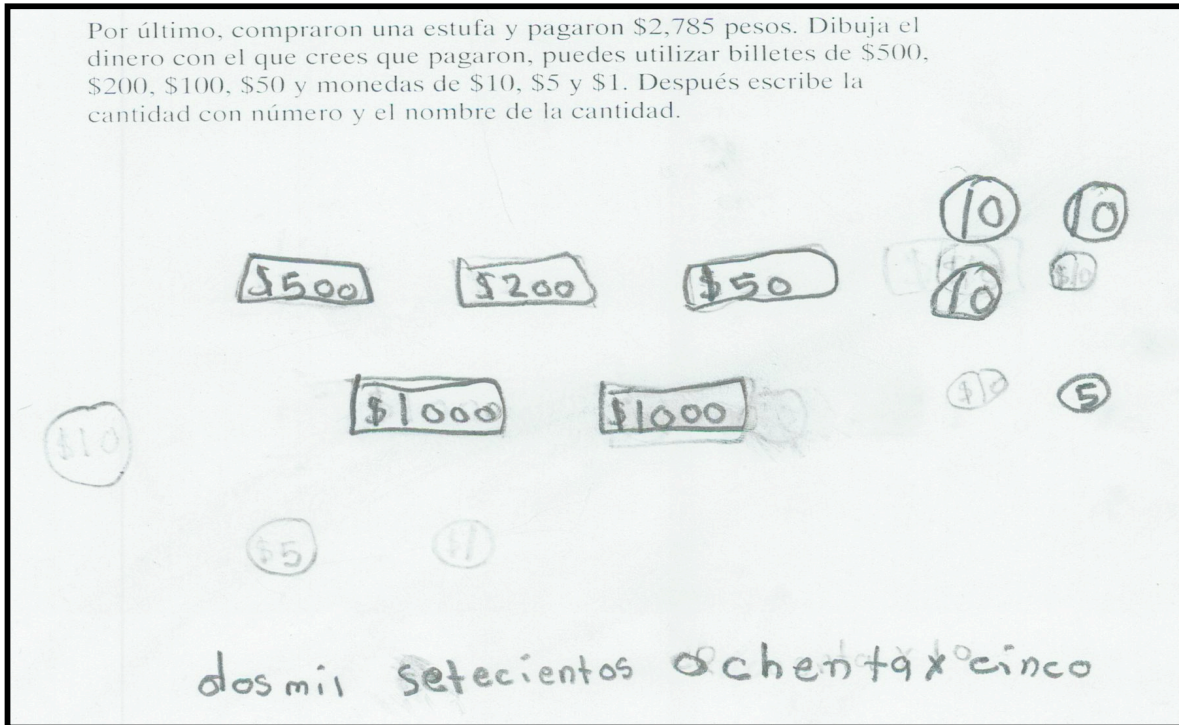 Por último, compraron una estufa y pagaron $2,785 pesos. Dibuja el
dinero con el que crees que pagaron, puedes utilizar billetes de $500,
$200, $100, $50 y monedas de $10, $5 y $1. Después escribe la
cantidad con número y el nombre de la cantidad.
10 10
$500 $200 $50 10 $10
$1000 $1000 $10 5
$10
$5 $1
dos mil setecientos ochenta y cinco